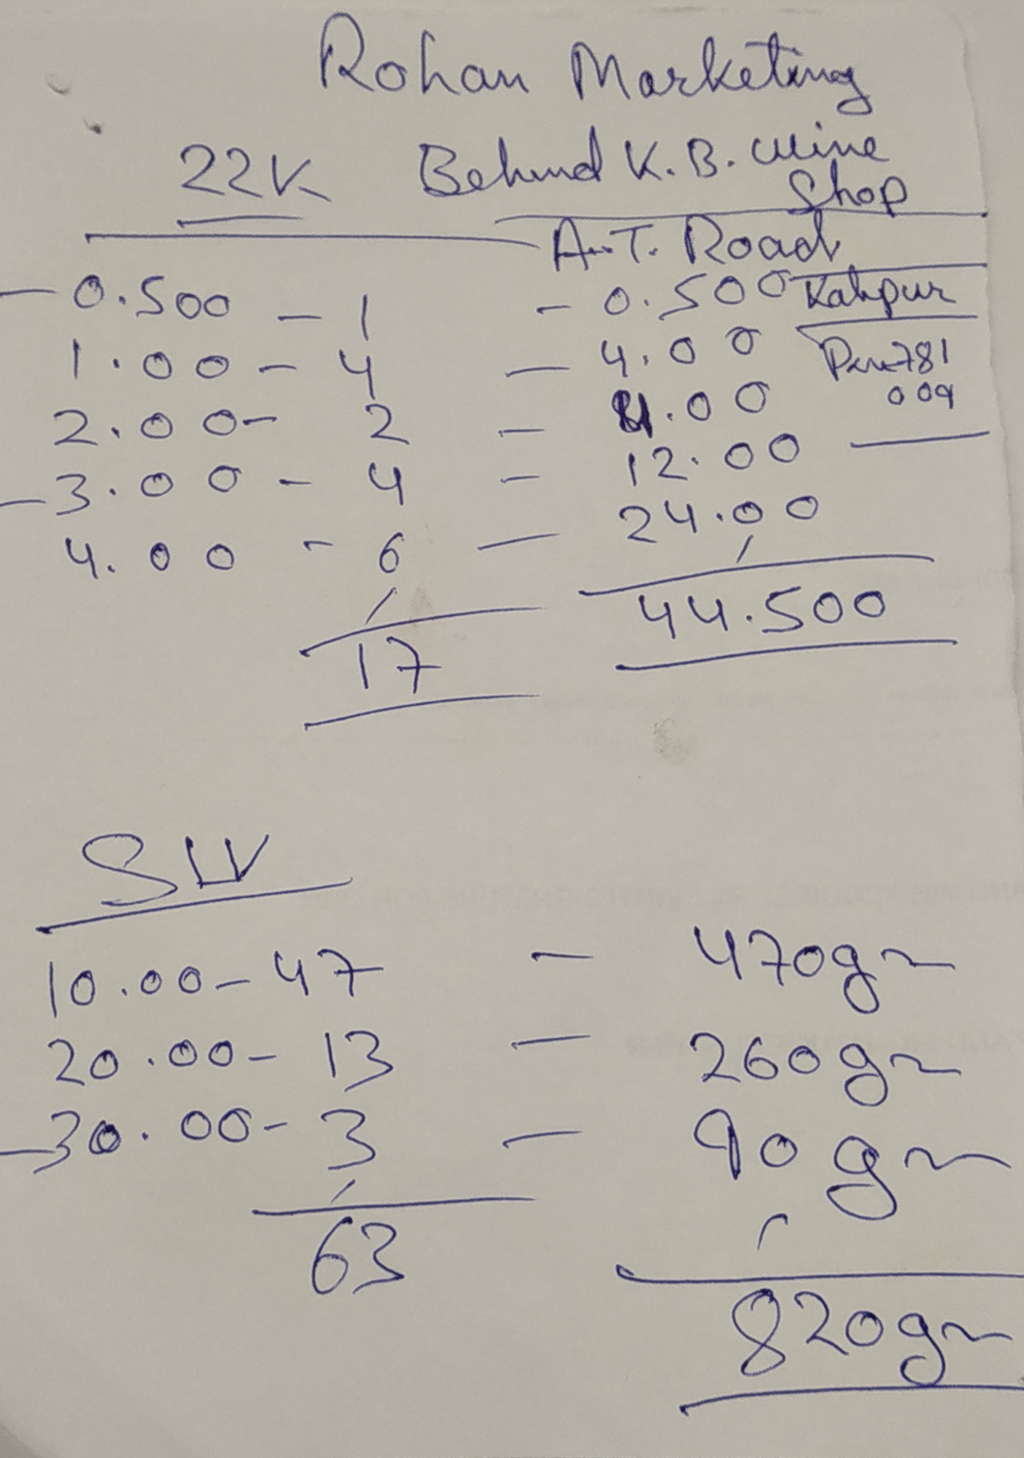 Rohan Marketing
22K Behind K.B. wine
Shop
A.T. Road
- 0.500 - 1 - 0.500 Kalipur
1.00 - 4 - 4.00
781
2.00 - 2 - 4.00 009
- 3.00 - 4 - 12.00
4.00 - 6 - 24.00
17 44.500
SLV
10.00 - 47 - 470gr
20.00 - 13 - 260gr
- 30.00 - 3 - 90gr
63
820gr